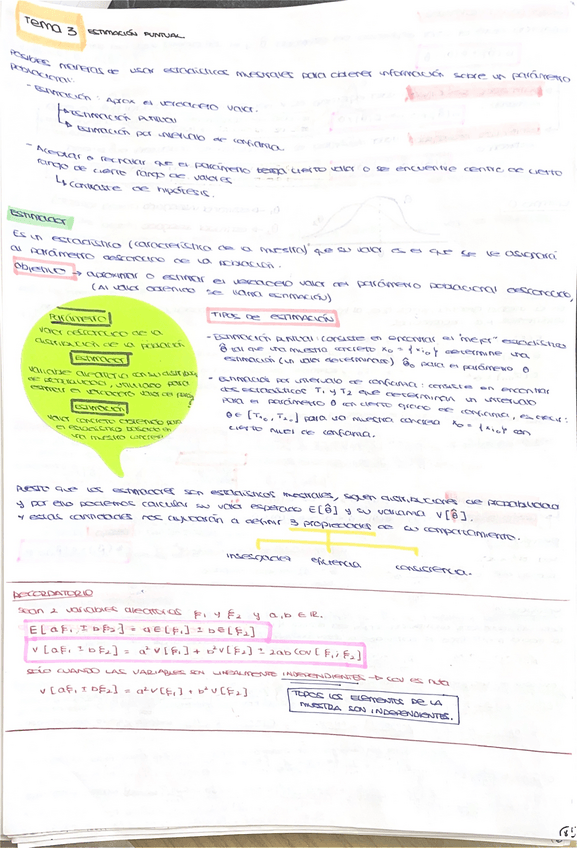 Tema 3 ESTIMACIÓN PUNTUAL
Posibles maneras de usar estadísticos muestrales para obtener información sobre un parámetro
poblacional:
- Estimación: Aprox el verdadero valor.
↳ Estimación puntual
↳ Estimación por intervalo de confianza
- Aceptar o rechazar que el parámetro tenga cierto valor o se encuentre dentro de cierto
rango de cierto rango de valores
↳ Contraste de hipótesis.
Estimador
Es un estadístico (característica de la muestra) que su valor es el que se le asignará
al parámetro desconocido de la población.
Objetivo → aproximar o estimar el verdadero valor del parámetro poblacional desconocido,
(Al valor obtenido se llama estimación)
Parámetro
valor desconocido de la
distribución de la población
Estimador
variable aleatoria con su distrib.
de probabilidad, utilizado para
estimar el verdadero valor del
Estimación
valor concreto obtenido para
el estadístico basado en
una muestra concreta
TIPOS DE ESTIMACIÓN
- Estimación puntual: consiste en encontrar el "mejor" estadístico
θ̂ tal que una muestra concreta x₀ = {xᵢ₀} determine una
estimación (un valor determinado) θ̂₀ para el parámetro θ
- Estimación por intervalo de confianza: consiste en encontrar
dos estadísticos T₁ y T₂ que determinan un intervalo
para el parámetro θ en cierto grado de confianza, es decir:
θ ∈ [T₁₀, T₂₀] para una muestra concreta x₀ = {xᵢ₀} con
cierto nivel de confianza.
Puesto que los estimadores son estadísticos muestrales, siguen distribuciones de probabilidad
y por ello podemos calcular su valor esperado E[θ̂] y su varianza V[θ̂].
y estas cantidades nos ayudarán a definir 3 propiedades de su comportamiento.
insesgadez eficiencia consistencia.
RECORDATORIO
Sean 2 variables aleatorias ξ₁ y ξ₂ y a, b ∈ ℝ.
E[aξ₁ ± bξ₂] = aE[ξ₁] ± bE[ξ₂]
V[aξ₁ ± bξ₂] = a²V[ξ₁] + b²V[ξ₂] ± 2ab COV[ξ₁, ξ₂]
SÓLO CUANDO LAS VARIABLES SON LINEALMENTE INDEPENDIENTES → COV ES NULA
V[aξ₁ ± bξ₂] = a²V[ξ₁] + b²V[ξ₂]
TODOS LOS ELEMENTOS DE LA
MUESTRA SON INDEPENDIENTES.